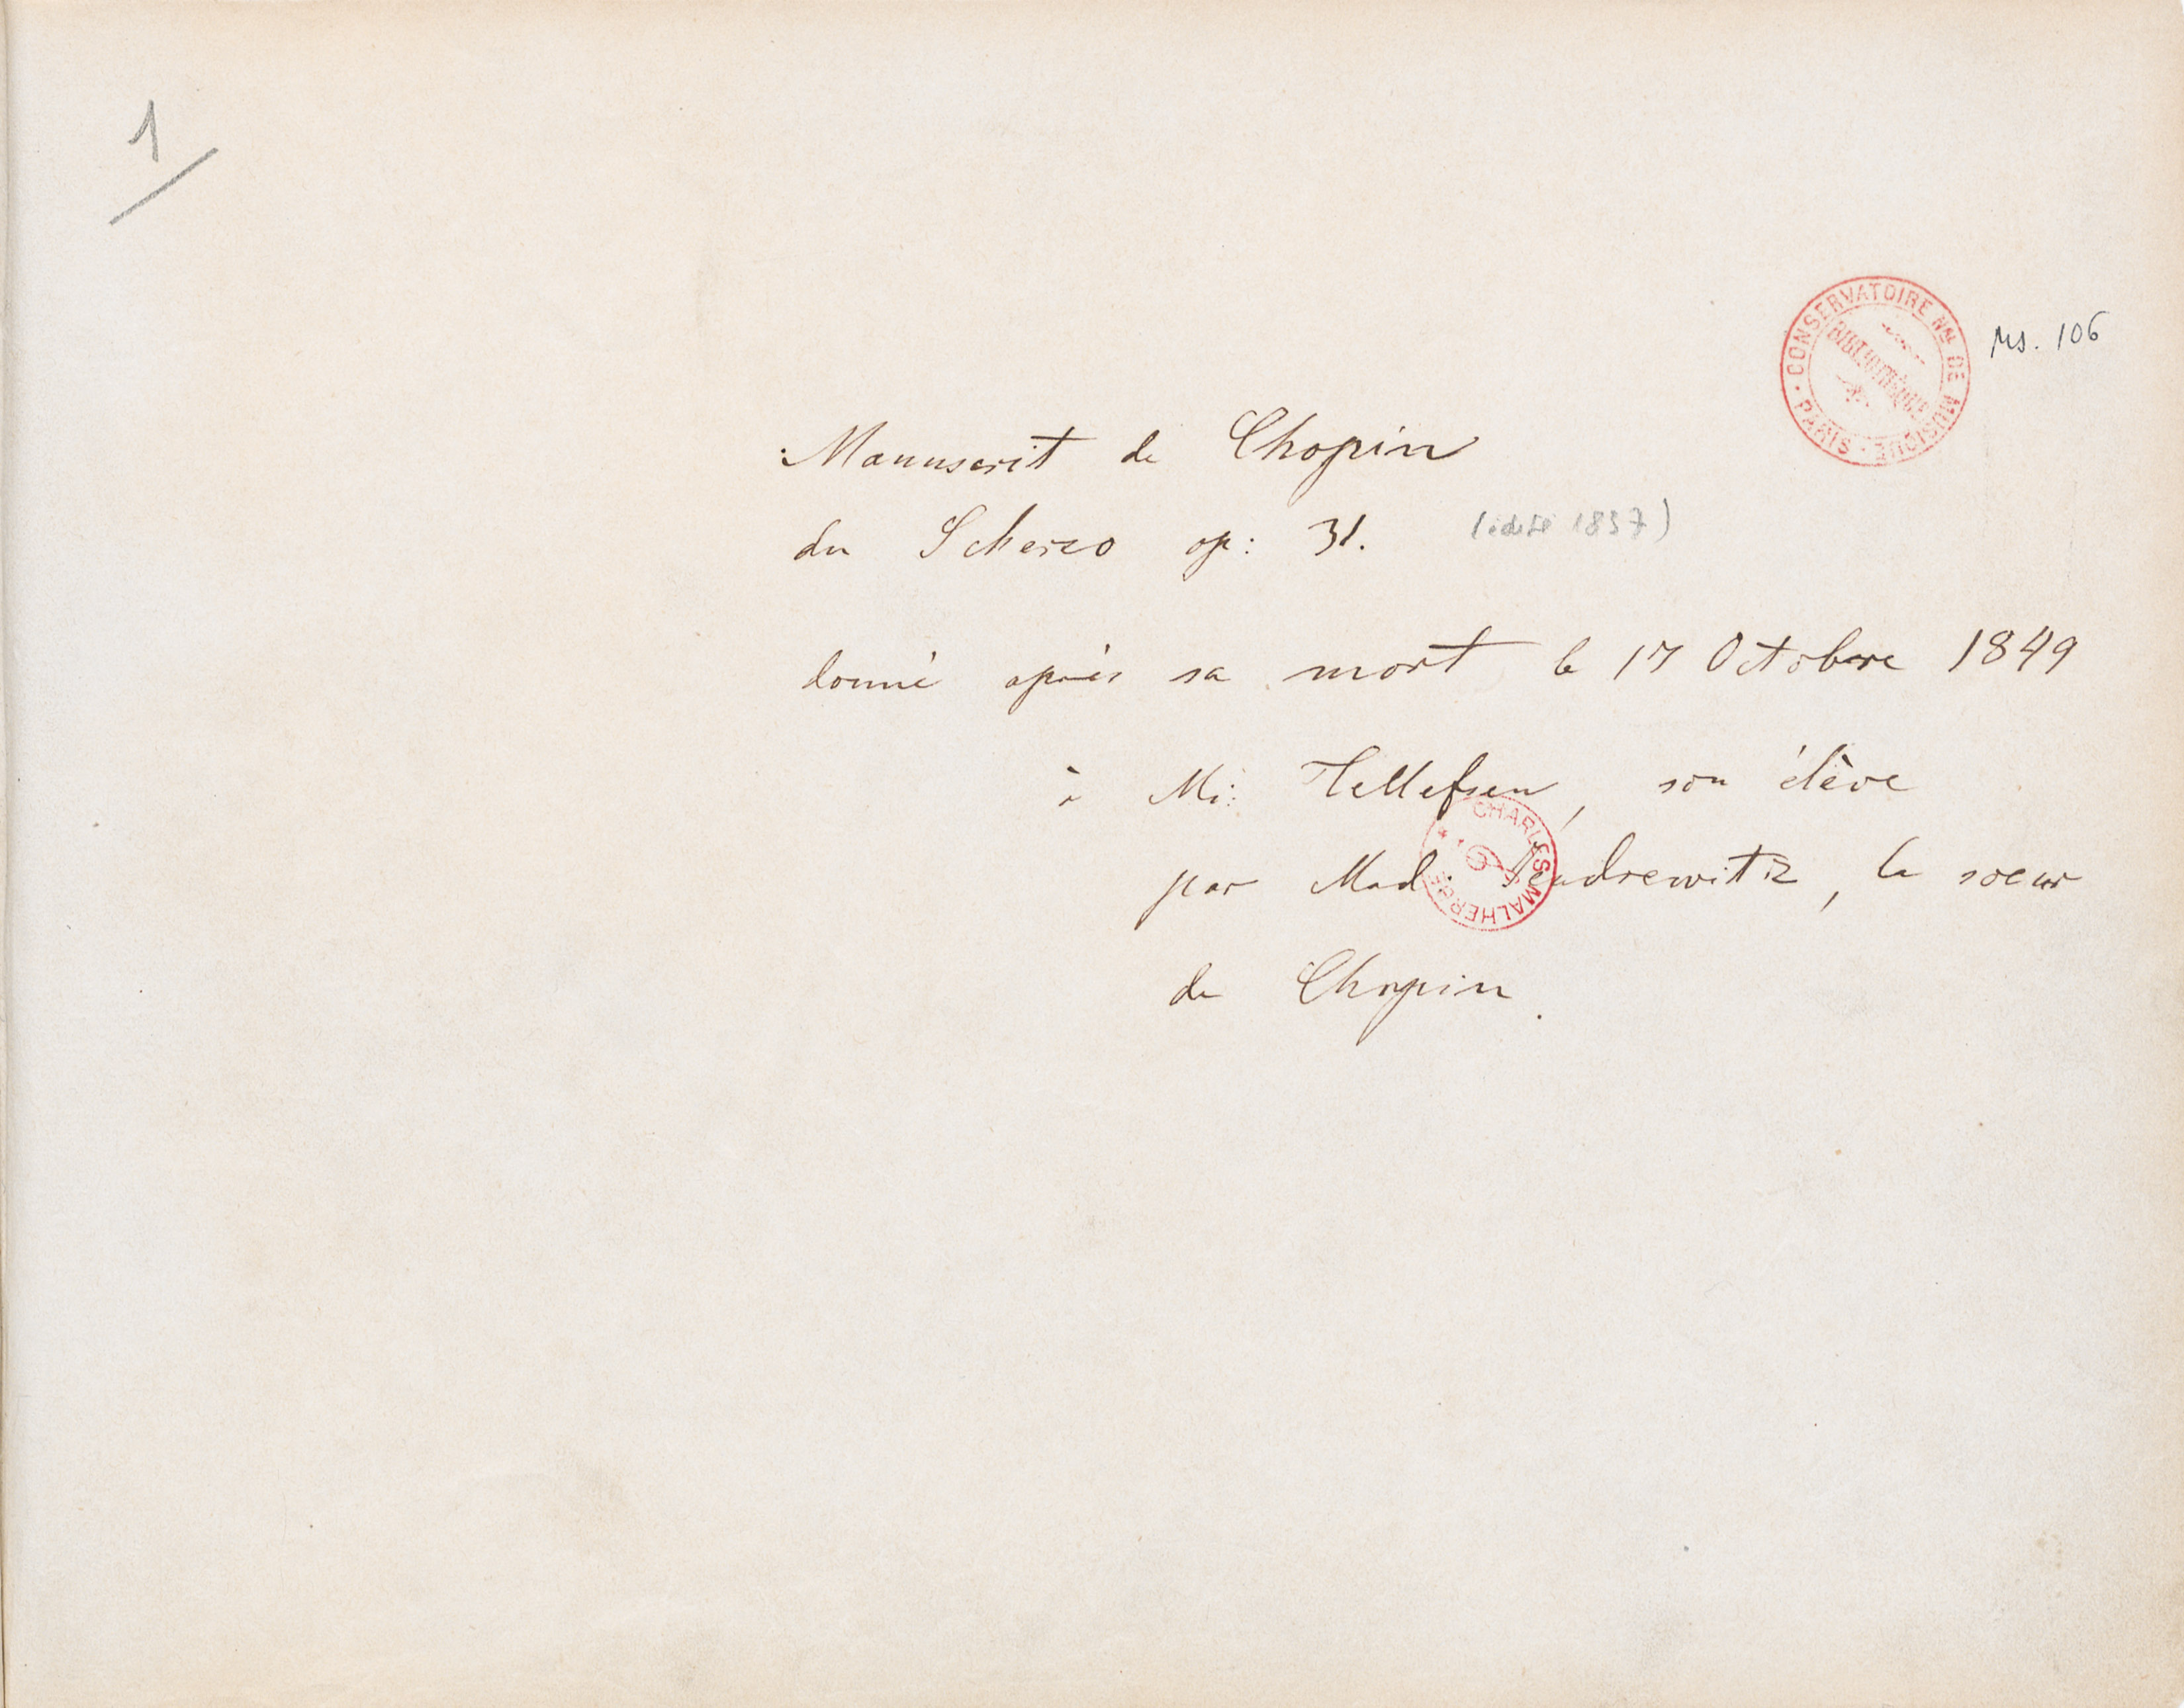 1
CONSERVATOIRE Nal DE MUSIQUE · PARIS ·
BIBLIOTHÈQUE
Ms. 106
Manuscrit de Chopin
du Scherzo op: 31. (édité 1837)
donné après sa mort le 17 Octobre 1849
à Mr: Tellefsen, son élève
par Mad: Jendrewitz, la soeur
CHARLES MALHERBE
de Chopin.